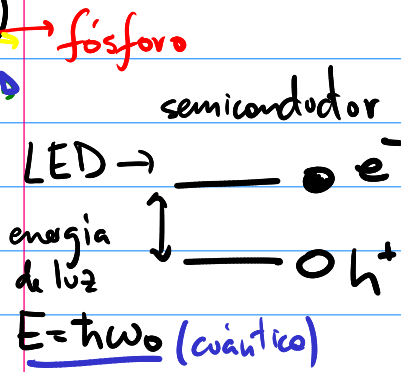 → fósforo
semiconductor
LED → e⁻
energía
de luz h⁺
E = ħω₀ (cuántico)